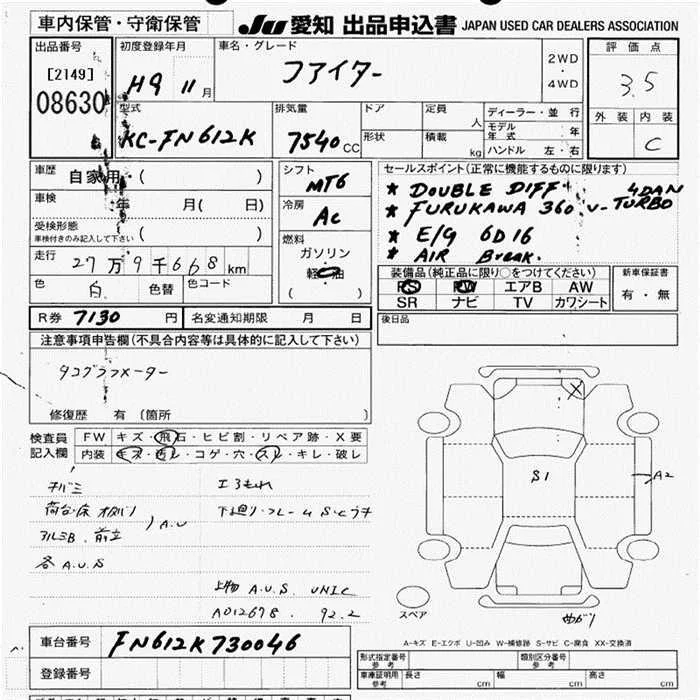 車内保管・守衛保管 JU 愛知 出品申込書 JAPAN USED CAR DEALERS ASSOCIATION
出品番号
[2149]
08630
初度登録年月
H9 11月
車名・グレード
ファイター
2WD
・
4WD
評価点
3.5
外装 内装
C
型式
KC-FN612K
排気量
7540CC
ドア
形状
定員
人
積載
kg
ディーラー・並行
モデル年式 年
ハンドル 左・右
車歴
自家用 ( )
車検
年 月( 日)
受検形態
車検付きのみ記入して下さい ( )
走行
27万9千668km
色
白 色替
色コード
シフト
MT6
冷房
AC
燃料
ガソリン
軽油
( )
セールスポイント(正常に機能するものに限ります)
★ DOUBLE DIFF
★ FURUKAWA 360 U- 4DAN TURBO
★ E/G 6D16
★ AIR Break.
装備品(純正品に限り○をつけてください)
PS PW エアB AW
SR ナビ TV カワシート
新車保証書
有・無
R券 7130円 名変通知期限 月 日
後日品
注意事項申告欄(不具合内容等は具体的に記入して下さい)
タコグラフメーター
修復歴 有 (箇所 )
検査員
記入欄
FW キズ・飛石・ヒビ割・リペア跡・X要
内装 キズ・汚レ・コゲ・穴・スレ・キレ・破レ
A.U
各 A.U.S
下廻り・フレーム S・Cサチ
上物 A.U.S. UNIC
A012678. 92.2
X
S1
A2
スペア
曲がり
A-キズ E-エクボ U-凹み W-補修跡 S-サビ C-腐食 XX-交換済
車台番号 FN612K730046
登録番号
形式指定番号
参考
類別区分番号
参考
車庫証明用
参考
長さ cm 幅 cm 高さ cm